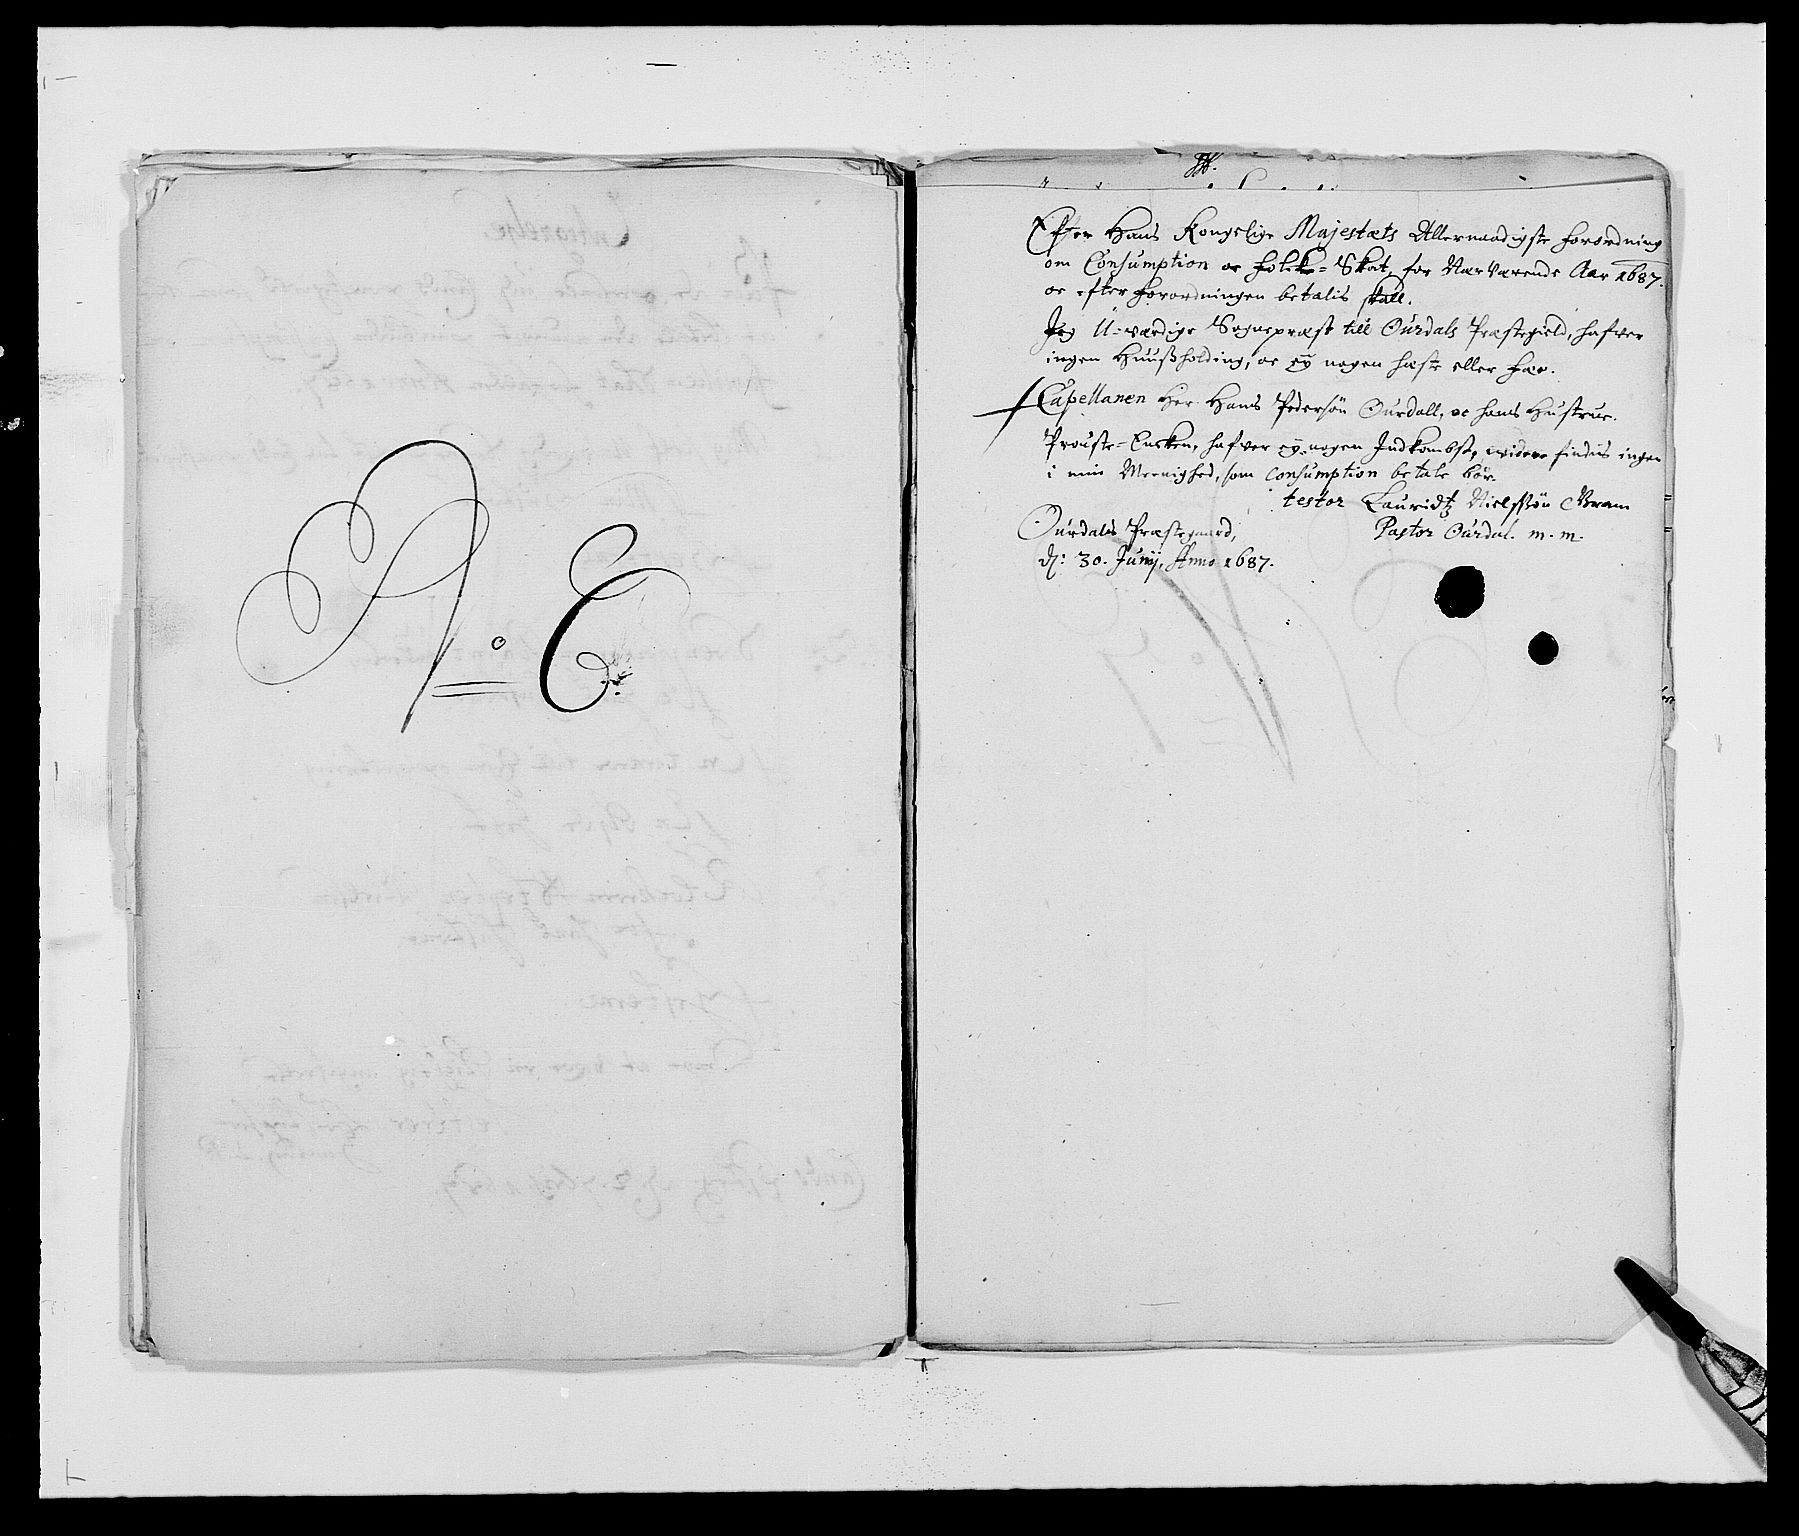 No 6
Efter Hans Kongelige Majestæts Allernaadigste forordning
om Consumption oc folcke=Skat, for Nærværende Aar 1687.
oc efter forordningen betalis skall.
Jeg U-værdige Sognepræst till Ourdals Præstegield, hafver
ingen Huussholding, oc ey nogen hæste eller fæe.
Capellanen Her Hans Pedersøn Ourdall, oc hans Hustrue.
Prouste-Encken, hafver ey nogen Indkombst, videre findis ingen
i min Meenighed, som Consumption betale bör.
testor Lauridtz Nielssøn Gram
Pastor Ourdal. m. m.
Ourdals Præstegaard,
d: 30. Junij, Anno 1687.